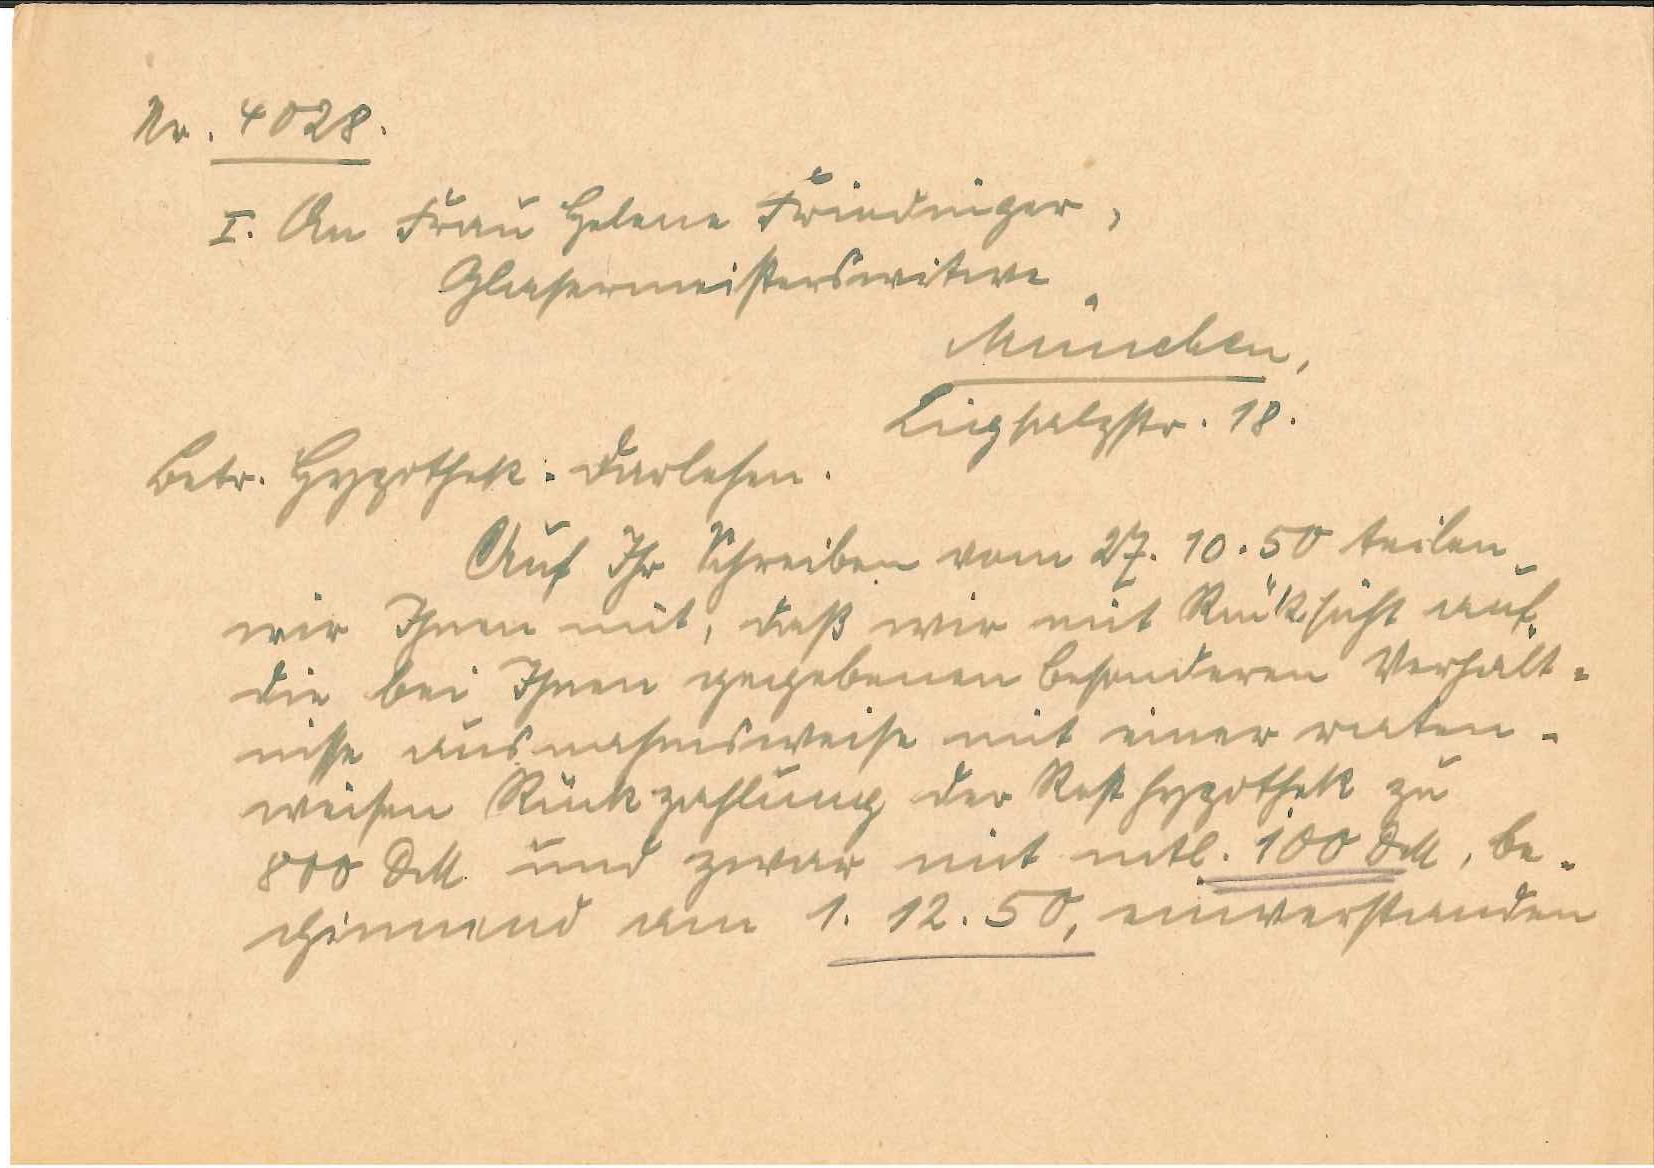 Nr. 4028.
I. An Frau Helene Friedinger,
Glasermeisterswitwe
München,
Ligsalzstr. 18.
Betr. Hypothek-Darlehen.
Auf Ihr Schreiben vom 27.10.50 teilen
wir Ihnen mit, daß wir mit Rücksicht auf
die bei Ihnen gegebenen besonderen Verhält-
nisse ausnahmsweise mit einer raten-
weisen Rückzahlung der Resthypothek zu
800 DM und zwar mit mtl. 100 DM, be-
ginnend am 1.12.50, einverstanden